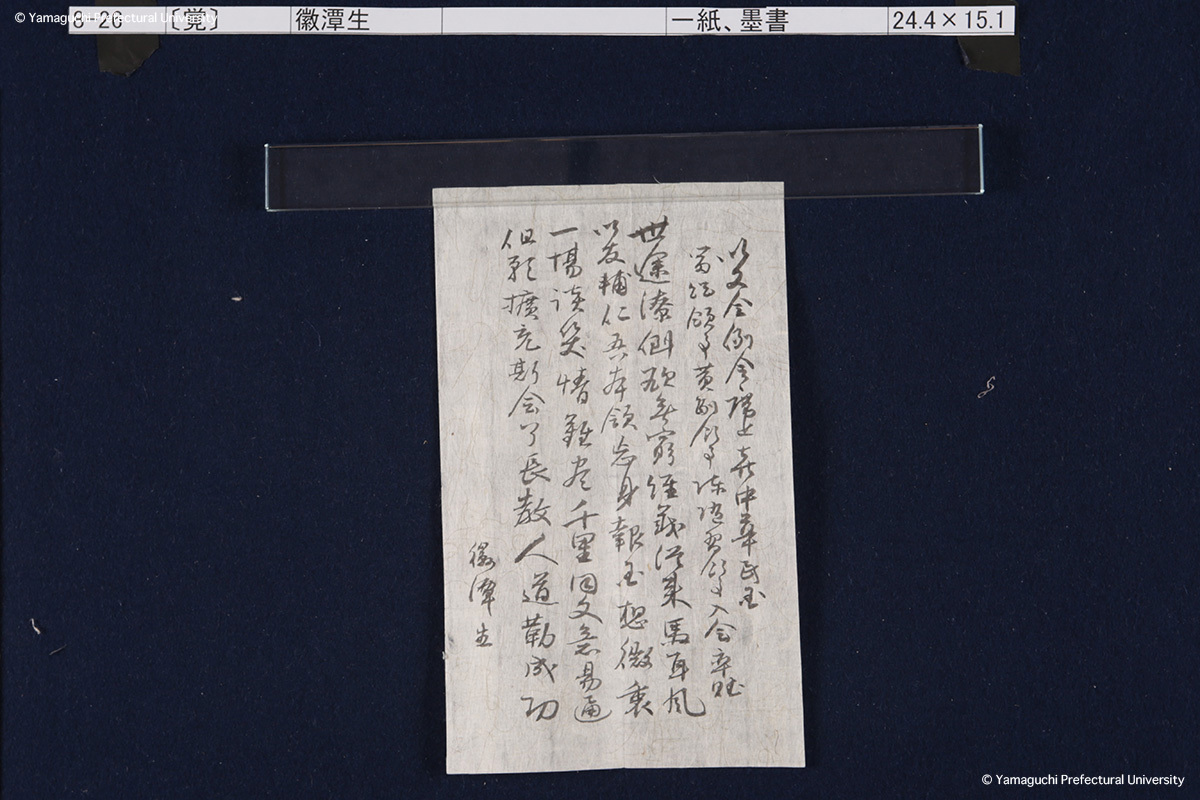 © Yamaguchi Prefectural University
9-26 〔覚〕 徽潭生 一紙、墨書 24.4×15.1
以文会例会席上喜中華民国
領事黄副領事陳随習領事入会率賦
世途潦倒欲無窮経義従来馬耳風
以友輔仁吾本領忘身報国想微衷
一場談笑情難尽千里同文意易通
但願擴充斯会了長教人道勤成功
徽潭生
© Yamaguchi Prefectural University